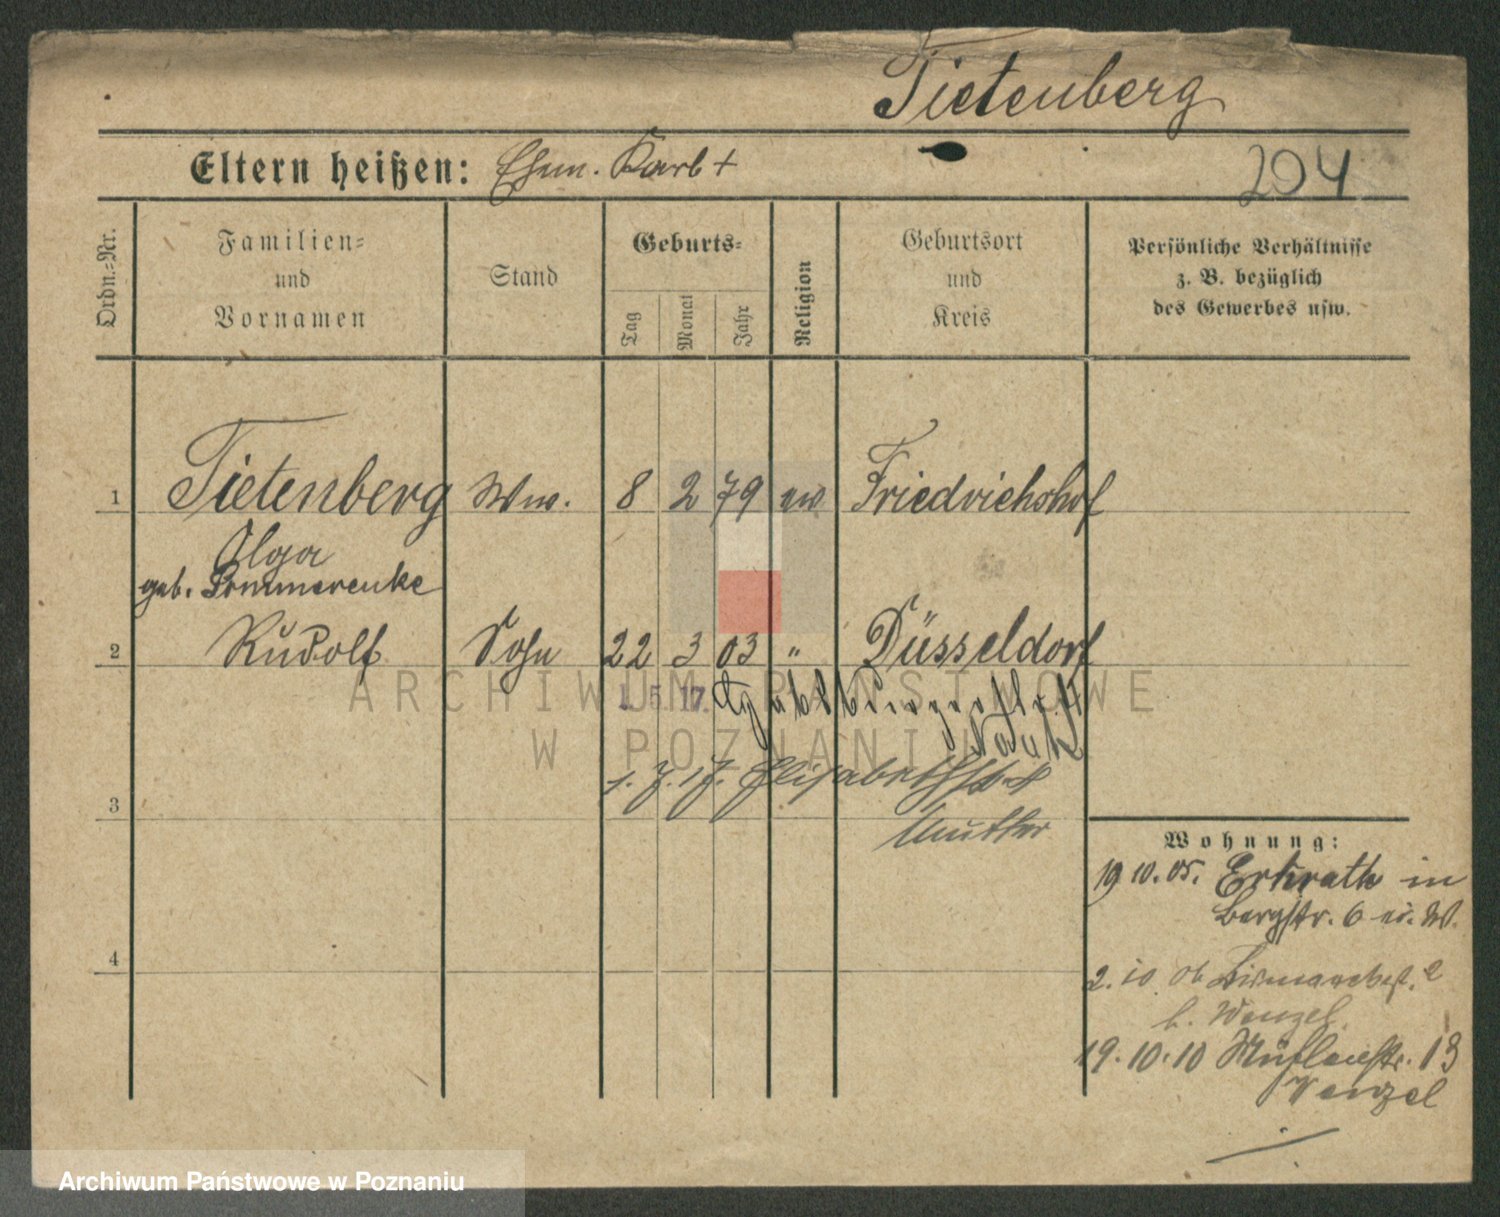 Tietenberg
Eltern heißen: Ehem. Karl +
204
Ordn.-Nr.
Familien-
und
Vornamen
Stand
Geburts-
Tag
Monat
Jahr
Religion
Geburtsort
und
Kreis
Persönliche Verhältnisse
z. B. bezüglich
des Gewerbes usw.
1 Tietenberg Ww. 8 2 79 ev Friedrichshof
Olga
geb. Sommerenke
2 Rudolf Sohn 22 3 03 " Düsseldorf
ARCHIWUM PAŃSTWOWE
W POZNANIU
1. 5. 17.
1. 7. 17. Elisabethst
3
Mutter
Wohnung:
19 10. 05. Erkrath in
Bergstr. 6 W.
2. 10 06 Bismarckst. 2
b. Wenzel
19. 10. 10 Mühlenstr. 13
Wenzel
4
Archiwum Państwowe w Poznaniu